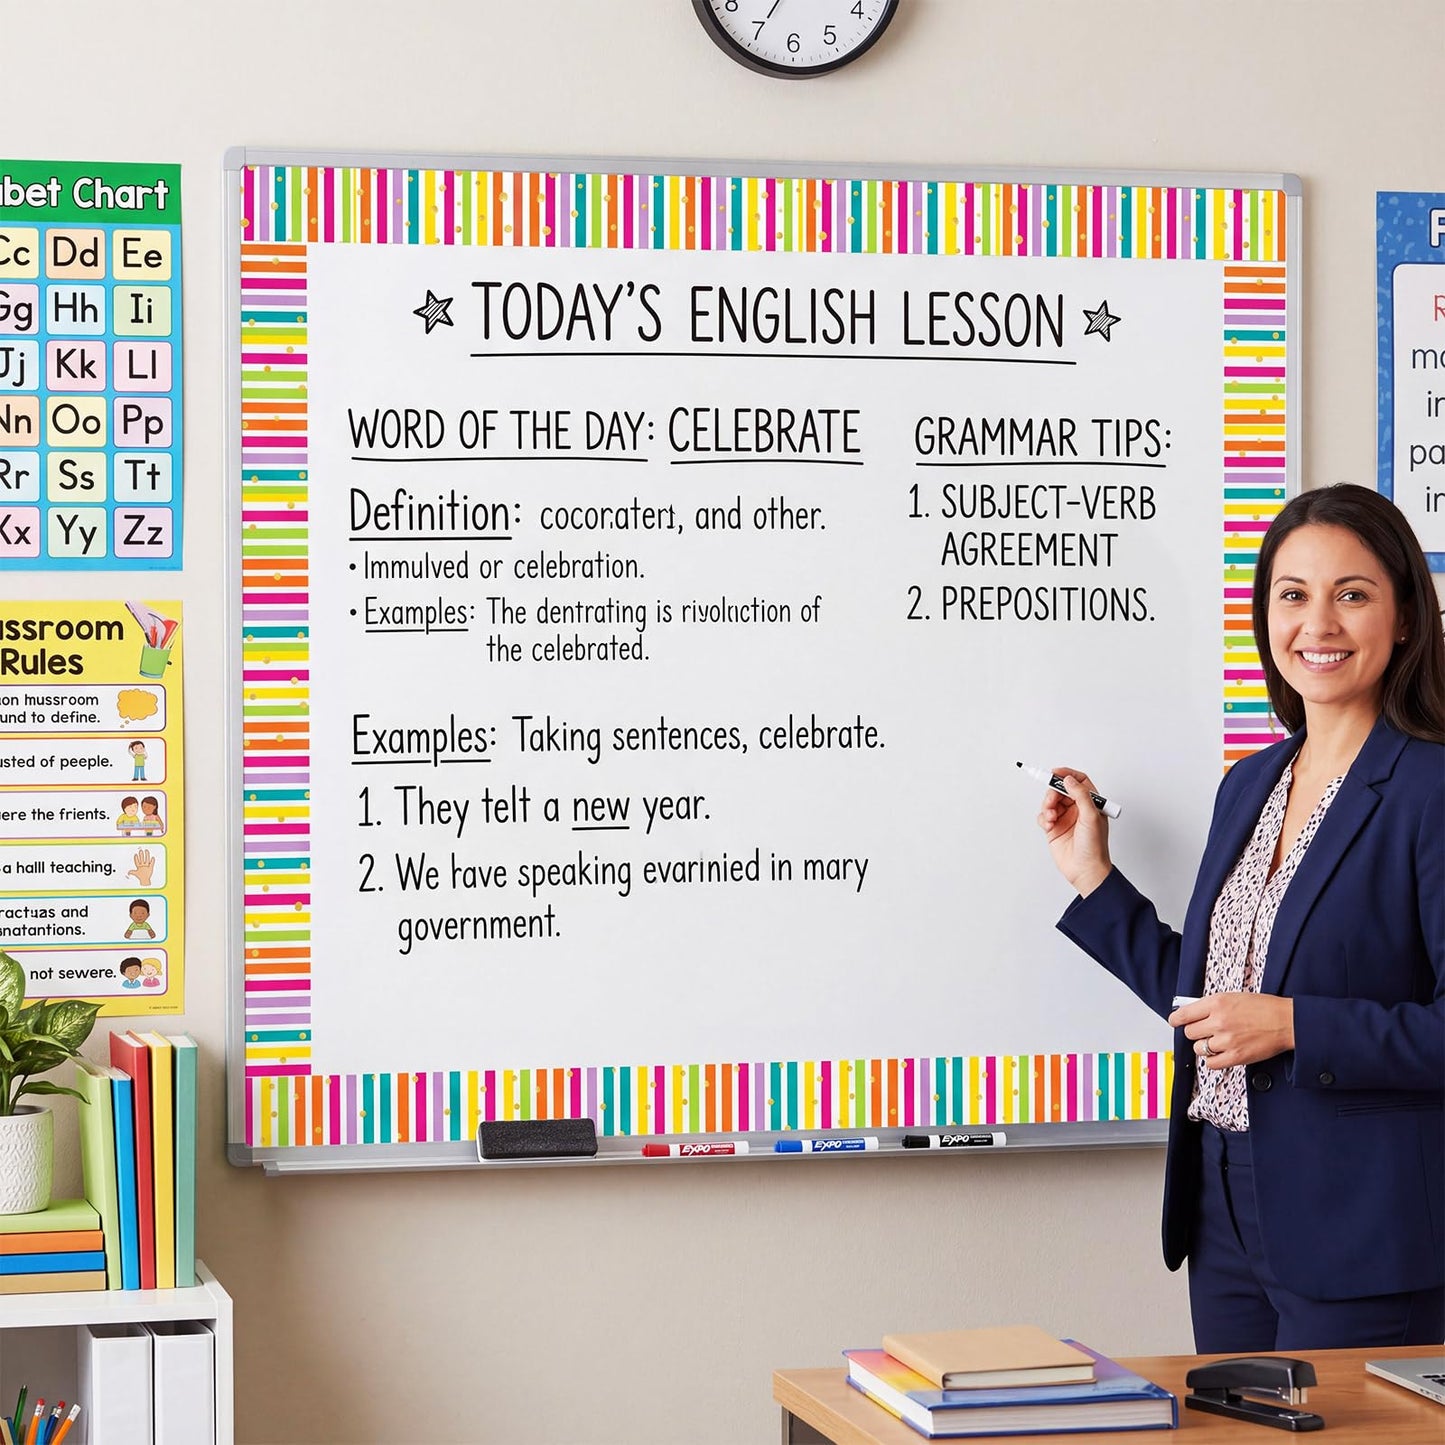 TODAY'S ENGLISH LESSON
WORD OF THE DAY: CELEBRATE
Definition: and other.
• Immulved or celebration.
• Examples: The dentrating is of
the celebrated.
Examples: Taking sentences, celebrate.
1. They telt a new year.
2. We speaking in mary
government.
GRAMMAR TIPS:
1. SUBJECT-VERB
AGREEMENT
2. PREPOSITIONS.
Chart
Cc Dd Ee
Gg Hh Ii
Jj Kk Ll
Nn Oo Pp
Rr Ss Tt
Xx Yy Zz
Rules
mussroom
to define.
of peeple.
the frients.
a halll teaching.
and
not sewere.
7 6 5 4
EXPO
EXPO
EXPO